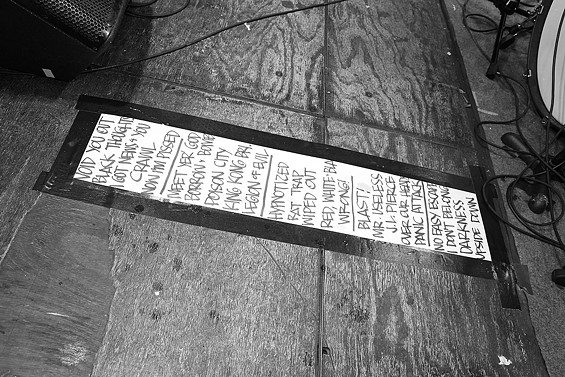 VOID YOU OUT
BLACK THOUGHTS
I GOT NEWS 4 YOU
CRAWL
NON I'M PISSED
MEET HER GOD
BORROW & BOMB
POISON CITY
KING KONG BRI.
LEGION OF EVIL
HYPNOTICED
RIOT TRAIN
WIPED OUT
RED, WHITE & BLA
WRONG!
BLAST!
MR. USELESS
J. PIERCE
OVER OUR HEAD
PANIC ATTACK
NO EASY ESCAPE
I DON'T BELONG
DARKNESS
UPSIDE DOWN